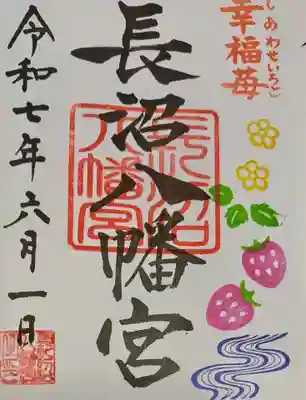 幸福苺
しあわせいちご
長沼八幡宮
長沼八幡宮
令和七年六月一日